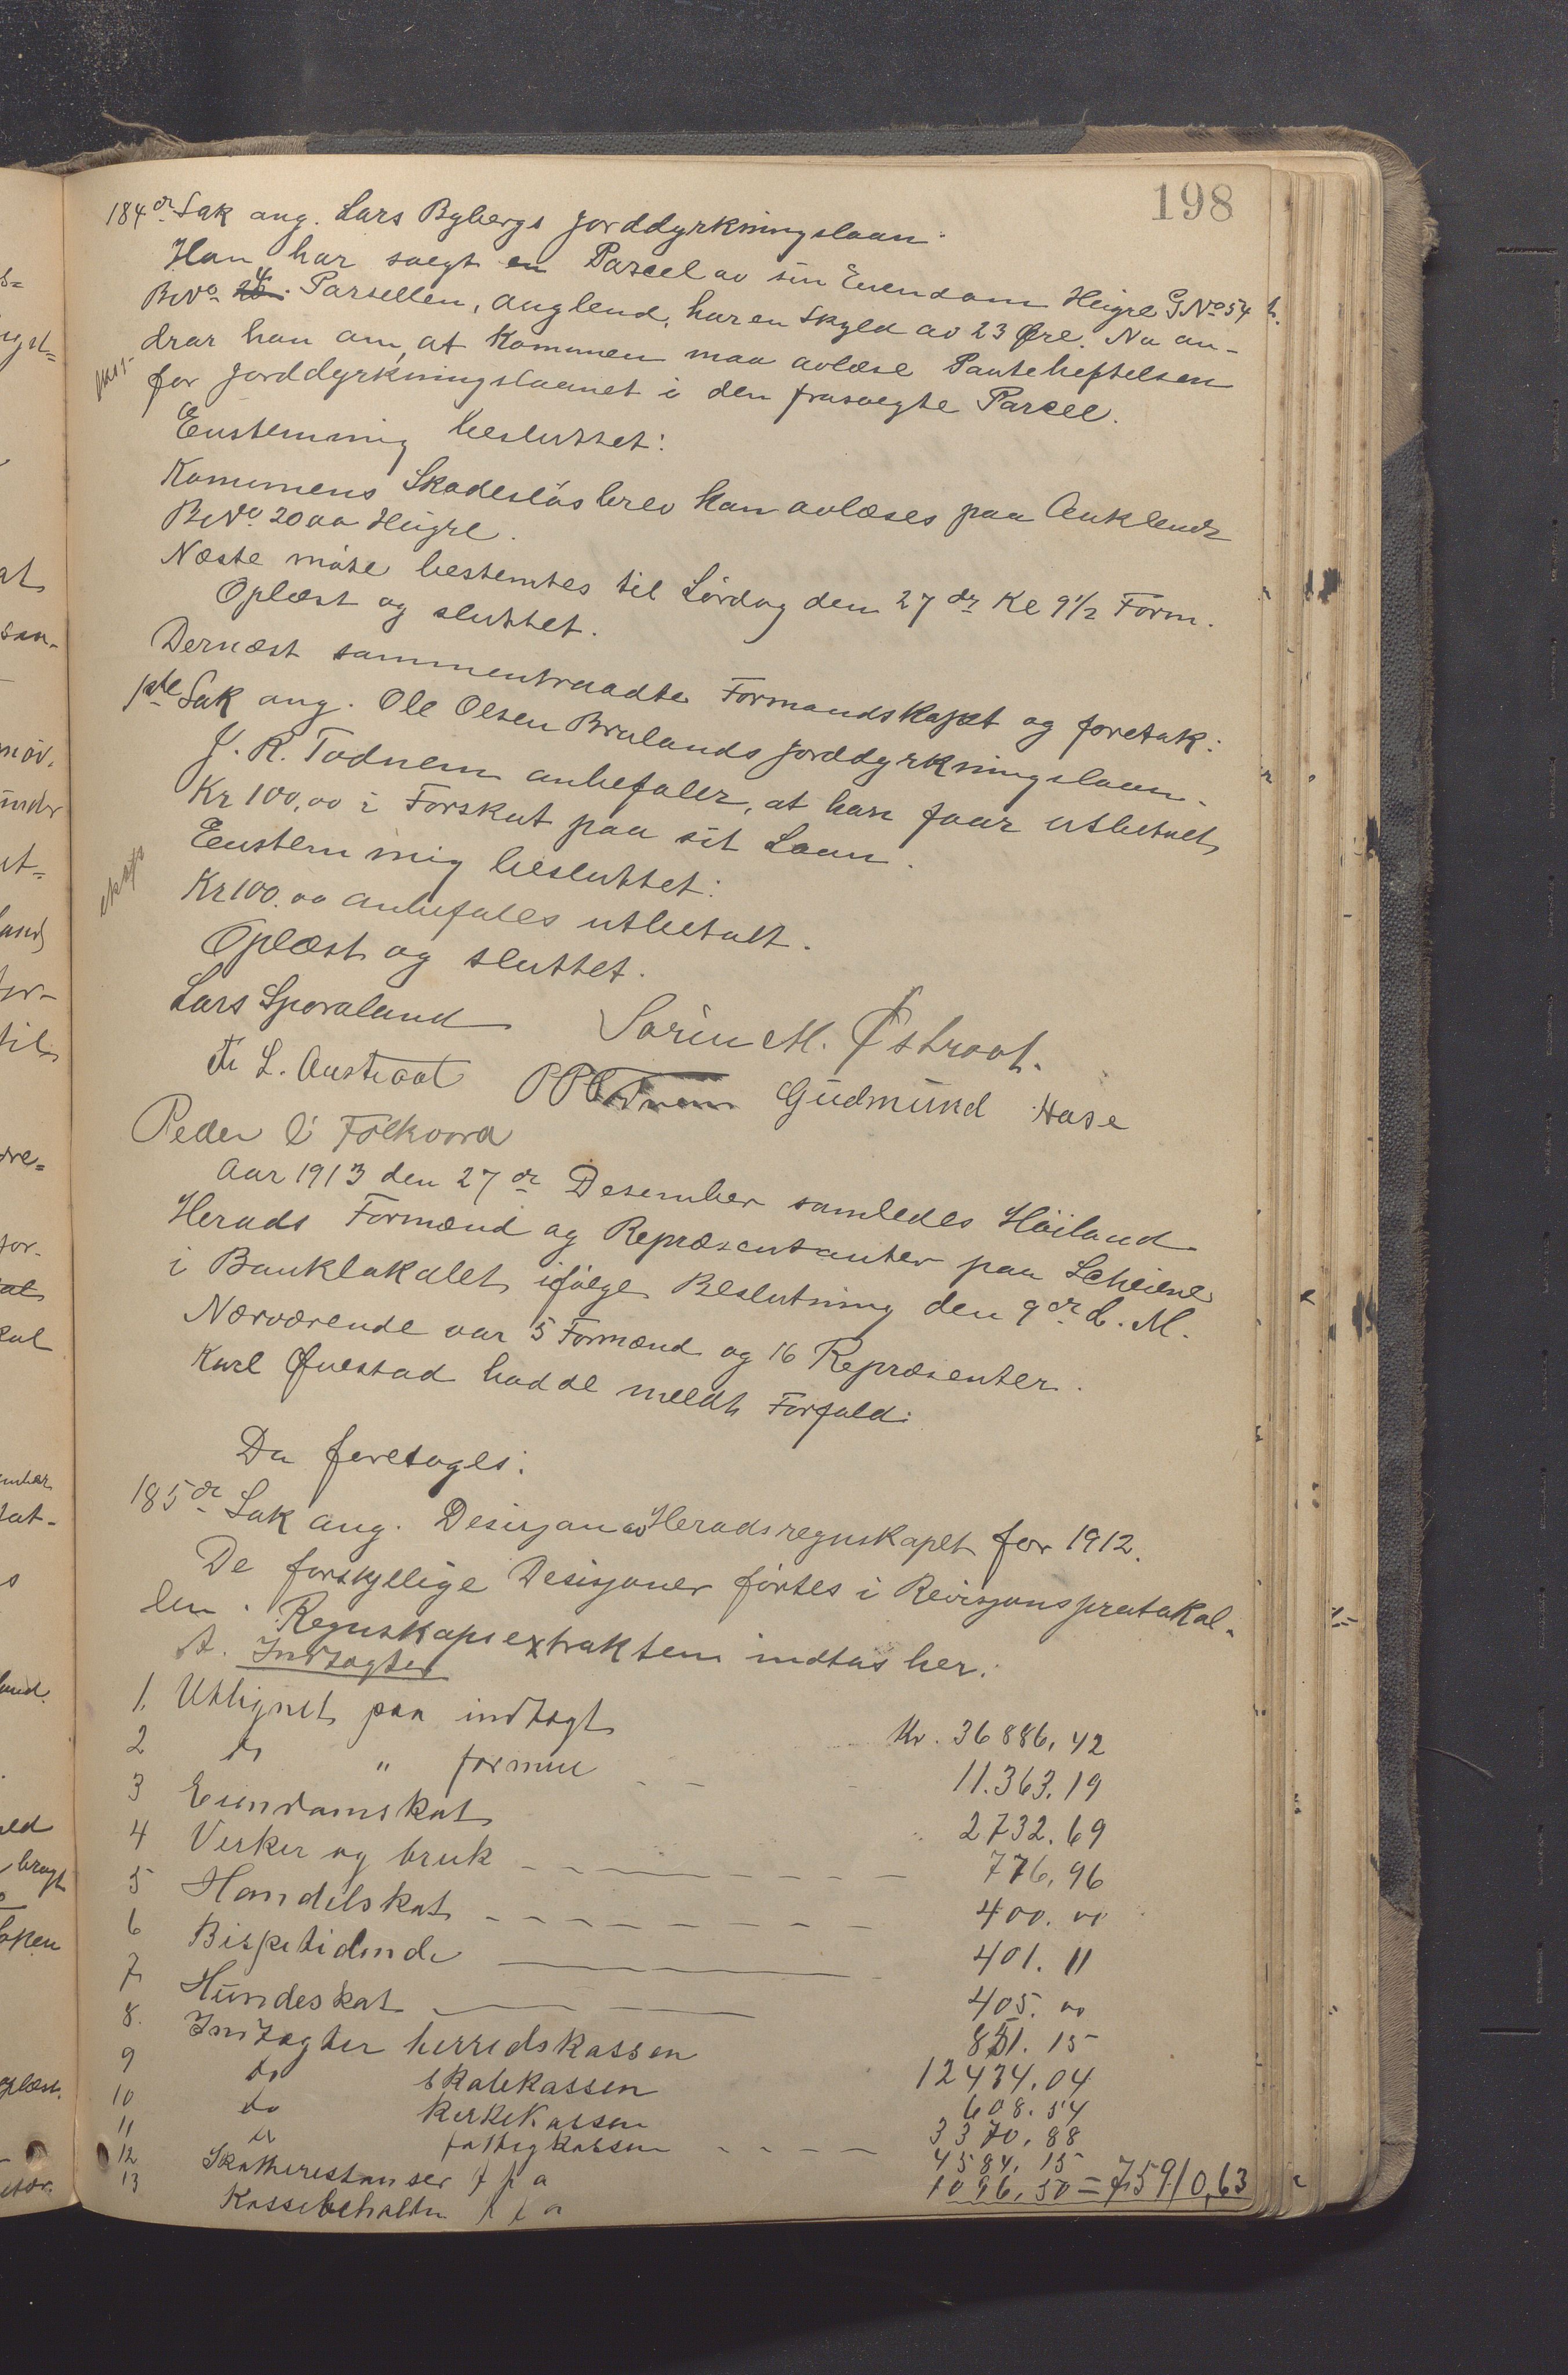 198
184de Sak ang. Lars Bybergs Jorddyrkningslaan.
Han har solgt en Parcel av sin Eiendom Heigre GNo 54
BNo 4. Parsellen, Auglend, har en Skyld av 23 Øre. Nu an-
drar han om, at Kommunen maa avlæse Panteheftelsen
for Jorddyrkningslaanet i den frasolgte Parcel.
Enstemmig besluttet:
Kommunens Skadesløsbrev kan avlæses paa Auklend
BNo 20 av Heigre.
Næste møte bestemtes til Lørdag den 27de Kl 9 1/2 Form.
Oplæst og sluttet.
Dernæst sammentraadte Formandskapet og foretok:
1ste Sak ang. Ole Olsen Brualands Jorddyrkningslaan.
J. R. Todnem anbefaler, at han faar utbetalt
Kr 100,00 i Forskut paa sit Laan.
Enstemmig besluttet:
eksp
Kr 100.00 anbefales utbetalt.
Oplæst og sluttet.
Lars Sporaland Sørin M. Østraat.
L. Austraat Gudmund Hove
Peder Folkvord
Aar 1913 den 27de Desember samledes Høiland
Herads Formænd og Repræsentanter paa Scheiene
i Banklokalet ifølge Beslutning den 9de d. M.
Nærværende var 5 Formænd og 16 Repræsenter.
Karl Øvestad hadde meldt Forfald.
Da foretoges:
185de Sak ang. Desisjon av Heradsregnskapet for 1912.
De forskjellige Desisjoner førtes i Revisjonsprotokol-
len. Regnskapsextrakten indtas her.
A. Indtægter
1. Utlignet paa indtægt Kr. 36886,42
2 do " formue 11.363.19
3 Eiendomskat 2732.69
4 Verker og bruk 776,96
5 Handelskat 400.00
6 Bispetiende 401.11
7 Hundeskat 405.00
8. Indtægter herredskassen 851.15
9 do skolekassen 12434.04
10 do kirkekassen 608.54
11 do fattigkassen 3370.88
12 Skatterestanser f f a 4584.15
13 Kassebeholdn f f a 1096,50 = 75910,63